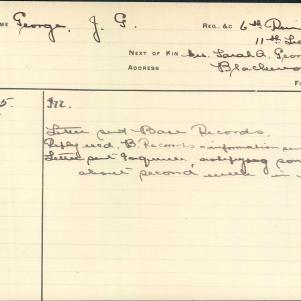 ME George, J. G. REG. &C 6th
11th
NEXT OF KIN Mrs. Sarah A.
ADDRESS
5. Ill.
Letter sent Base Records.
Reply recd. B. Records information
Letter sent Enquirer, notifying
about second week in